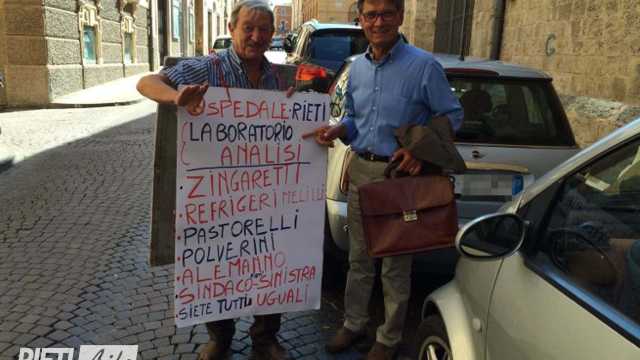 OSPEDALE·RIETI
(LABORATORIO
( ANALISI
·ZINGARETTI
·REFRIGERI MELILLI
·PASTORELLI
·POLVERINI
·ALEMANNO
·SINDACO-SINISTRA
SIETE TUTTI UGUALI
RIETI Life